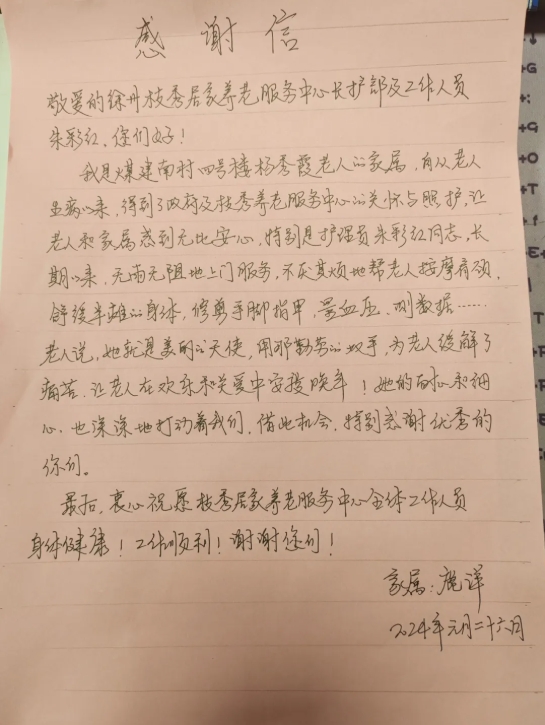 感谢信
敬爱的徐丹枝秀居家养老服务中心长护部及工作人员
朱彩红、您们好！
我是煤建南村四号楼杨秀霞老人的家属，自从老人
生病以来，得到了政府及枝秀养老服务中心的关怀与照护，让
老人和家属感到无比安心，特别是护理员朱彩红同志，长
期以来，无雨无阻地上门服务，不厌其烦地帮老人按摩肩颈，
舒缓半瘫的身体，修剪手脚指甲、量血压、测数据……
老人说，她就是美丽的天使，用那勤劳的双手，为老人缓解了
痛苦，让老人在欢乐和关爱中安援晚年！她的耐心和细
心、也深深地打动着我们，借此机会，特别感谢优秀的
你们。
最后，衷心祝愿枝秀居家养老服务中心全体工作人员
身体健康！工作顺利！谢谢您们！
家属：鹿洋
2024年元月二十六日
+G
+:
+G
+O
+T
+f